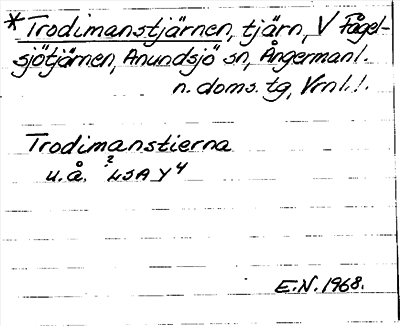 *Trodimanstjärnen, tjärn, V Fågel-
sjötjärnen, Anundsjö sn, Ångermanl.
n. doms. tg, Vrnl.!.
Trodimanstierna
u.å. LSA Y4
E.N. 1968.